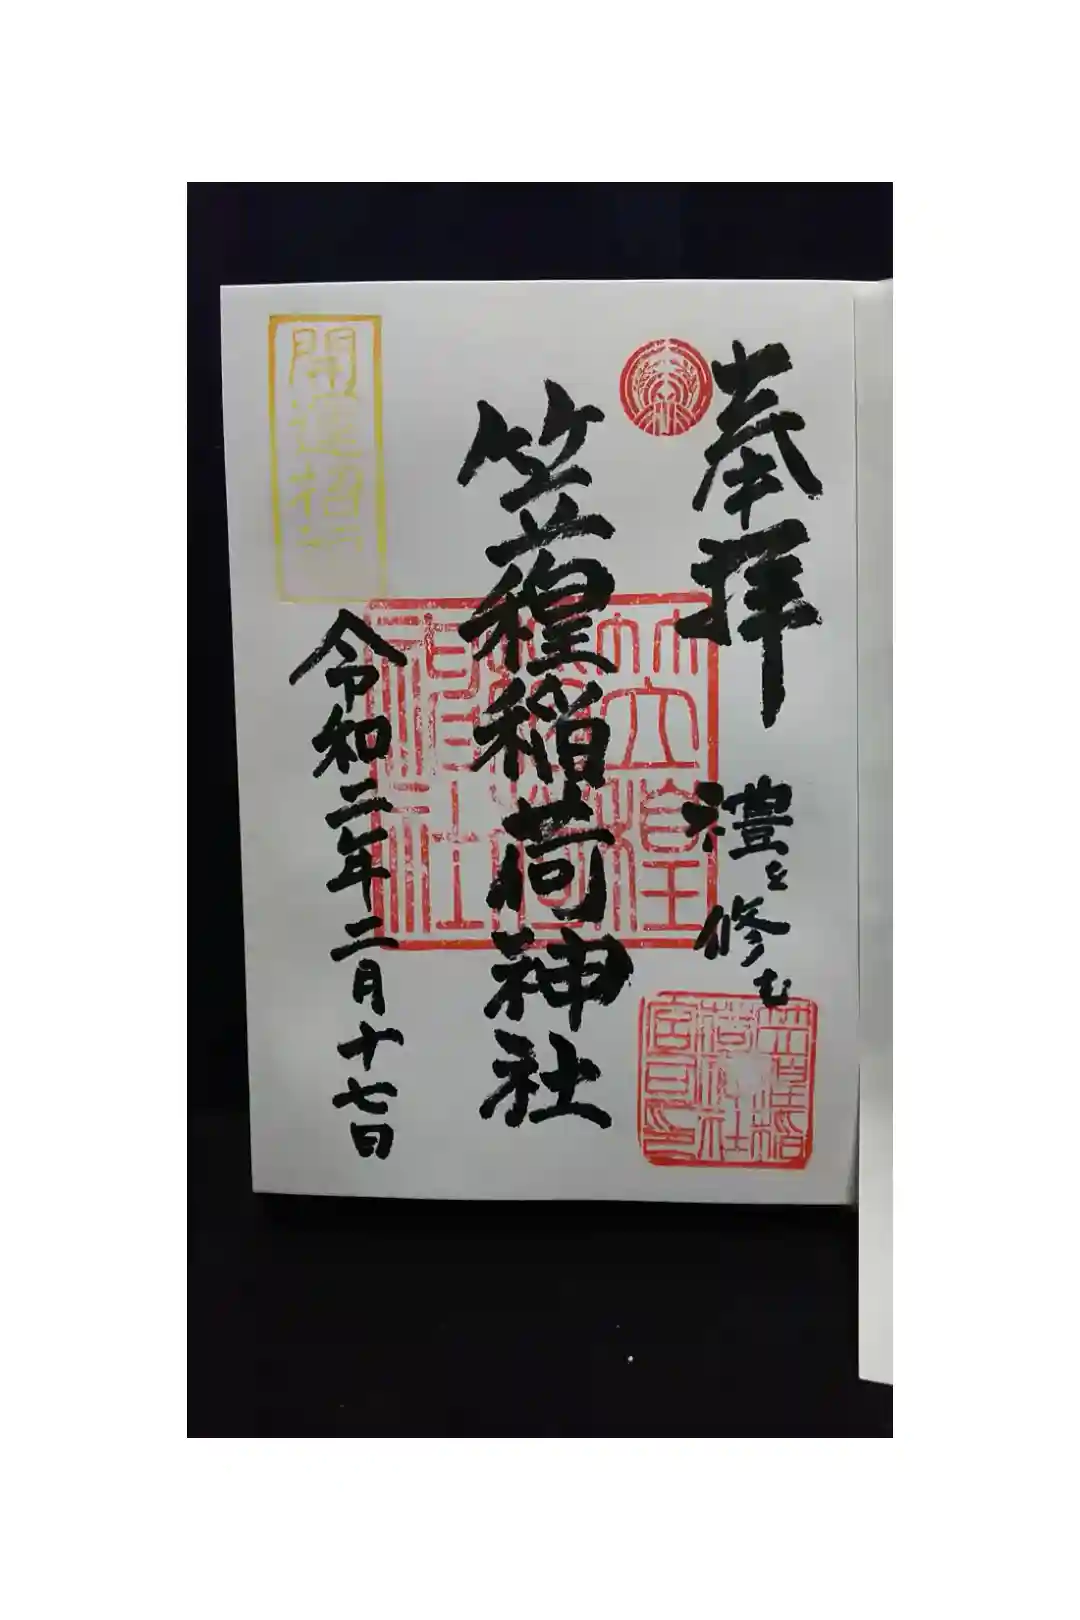 奉拝
禮を修む
笠䅣稲荷神社宮司印
笠䅣稲荷神社
笠䅣稲荷神社
開運招
令和二年二月十七日